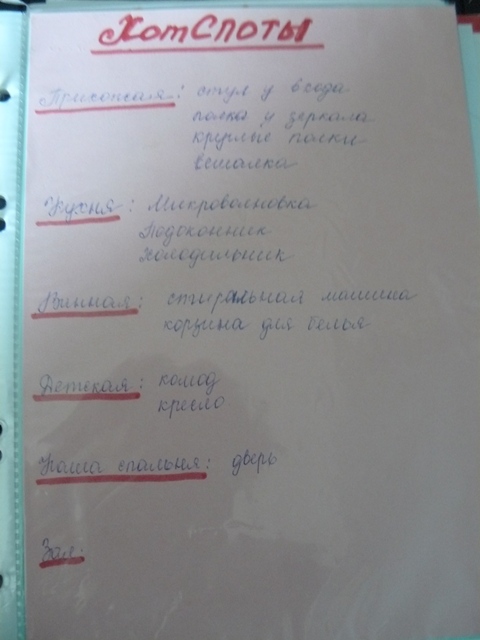 ХотСпоты
Прихожая: стул у входа
полка у зеркала
круглые полки
вешалка
Кухня: Микроволновка
Подоконник
Холодильник
Ванная: стиральная машина
корзина для белья
Детская: комод
кресло
Наша спальня: дверь
Зал: